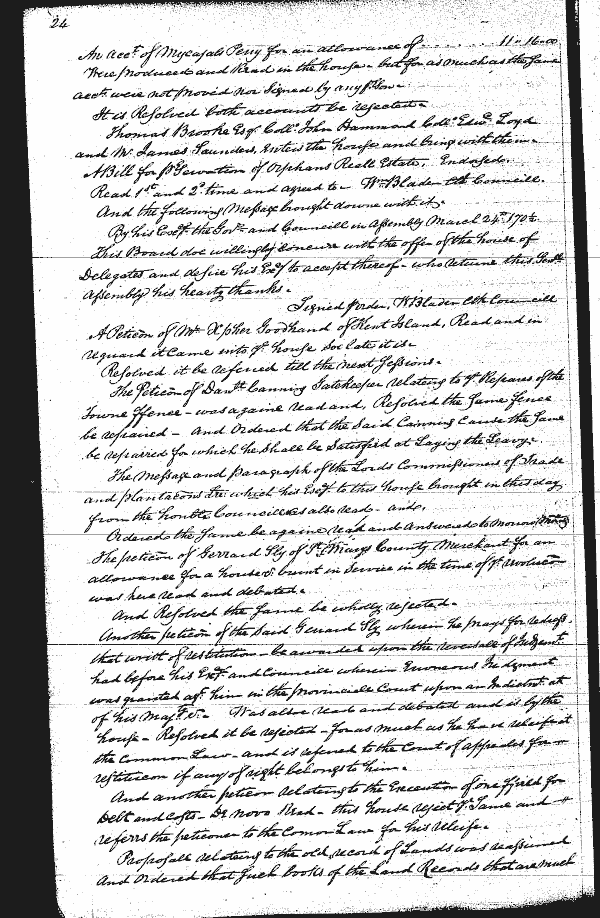 24
An acct. of Mycajah Perry for an allowance of . . . . . . 11-16-00
Were produced and Read in the house - but for as much as the same
accts. were not proved nor Signed by any pson -
It is Resolved both accounts be rejected -
Thomas Brooke Esqr Collo. John Hammond Collo. Edwd. Loyd
and Mr. James Saunders, Enters the house and bring with them -
A Bill for pServation of Orphans Reall Estates, Endorsed.
Read 1st and 2d time and agreed to - Wm Bladen Clk Councill.
And the following Message brought downe with it.
By his Excy the Govr. and Councill in Assembly March 24th 170
This Board doe willingly Concurr with the offer of the house of
Delegates and desire his Exy to accept thereof - who returns this
Assembly his hearty thanks -
Signed p order, W Bladen Clk Councill
A Peticon of Mr. Xpher Goodhand of Kent Island, Read and in
reguard it came into ye. house soe late it is -
Resolved it be referred till the next Sessions -
The Peticon of Danll. Canning Gatekeeper relateing to ye. Repaires of the
Towne ffence - was againe read and, Resolved the Same ffence
be repaired - And Ordered that the Said Canning Cause the Same
be repaired for which he Shall be Satisfied at Laying the Leavy -
The Message and Paragraph of the Lords Commissioners of Trade
and plantacons Lre which his Excy. to this house brought in this day
from the honble Councill was also read - and,
Ordered the Same be againe read and Answered to morrow morning
The peticon of Gerrard Sly of St. Marys County Merchant for an
allowance for a house burnt in Service in the time of ye. revolucon
was here read and debated -
And Resolved the Same be wholly rejected -
Another peticon of the Said Gerrard Sly wherein he prays for redress.
that writt of restitution - be awarded upon the reversall of Judgmt.
had before his Excy. and Councill wherein Erroneous Judgment
was granted agt. him in the Provinciall Court upon an Indictmt. at
of his Majty. &c. - Was alsoe read and debated and is by the
house - Resolved it be rejected - for as much as he have releife at
the Common Law - and is referred to the Court of appeales for a
restitucon if any of right belongs to him -
And another peticon relateing to the Execution of one ffield for
Debt and Costs - De novo Read - this house reject ye. Same and
referrs the peticoner to the Comon Law for his Releife -
Proposalls relateing to the old record of Lands was reassumed
And Ordered that Such books of the Land Records that are much